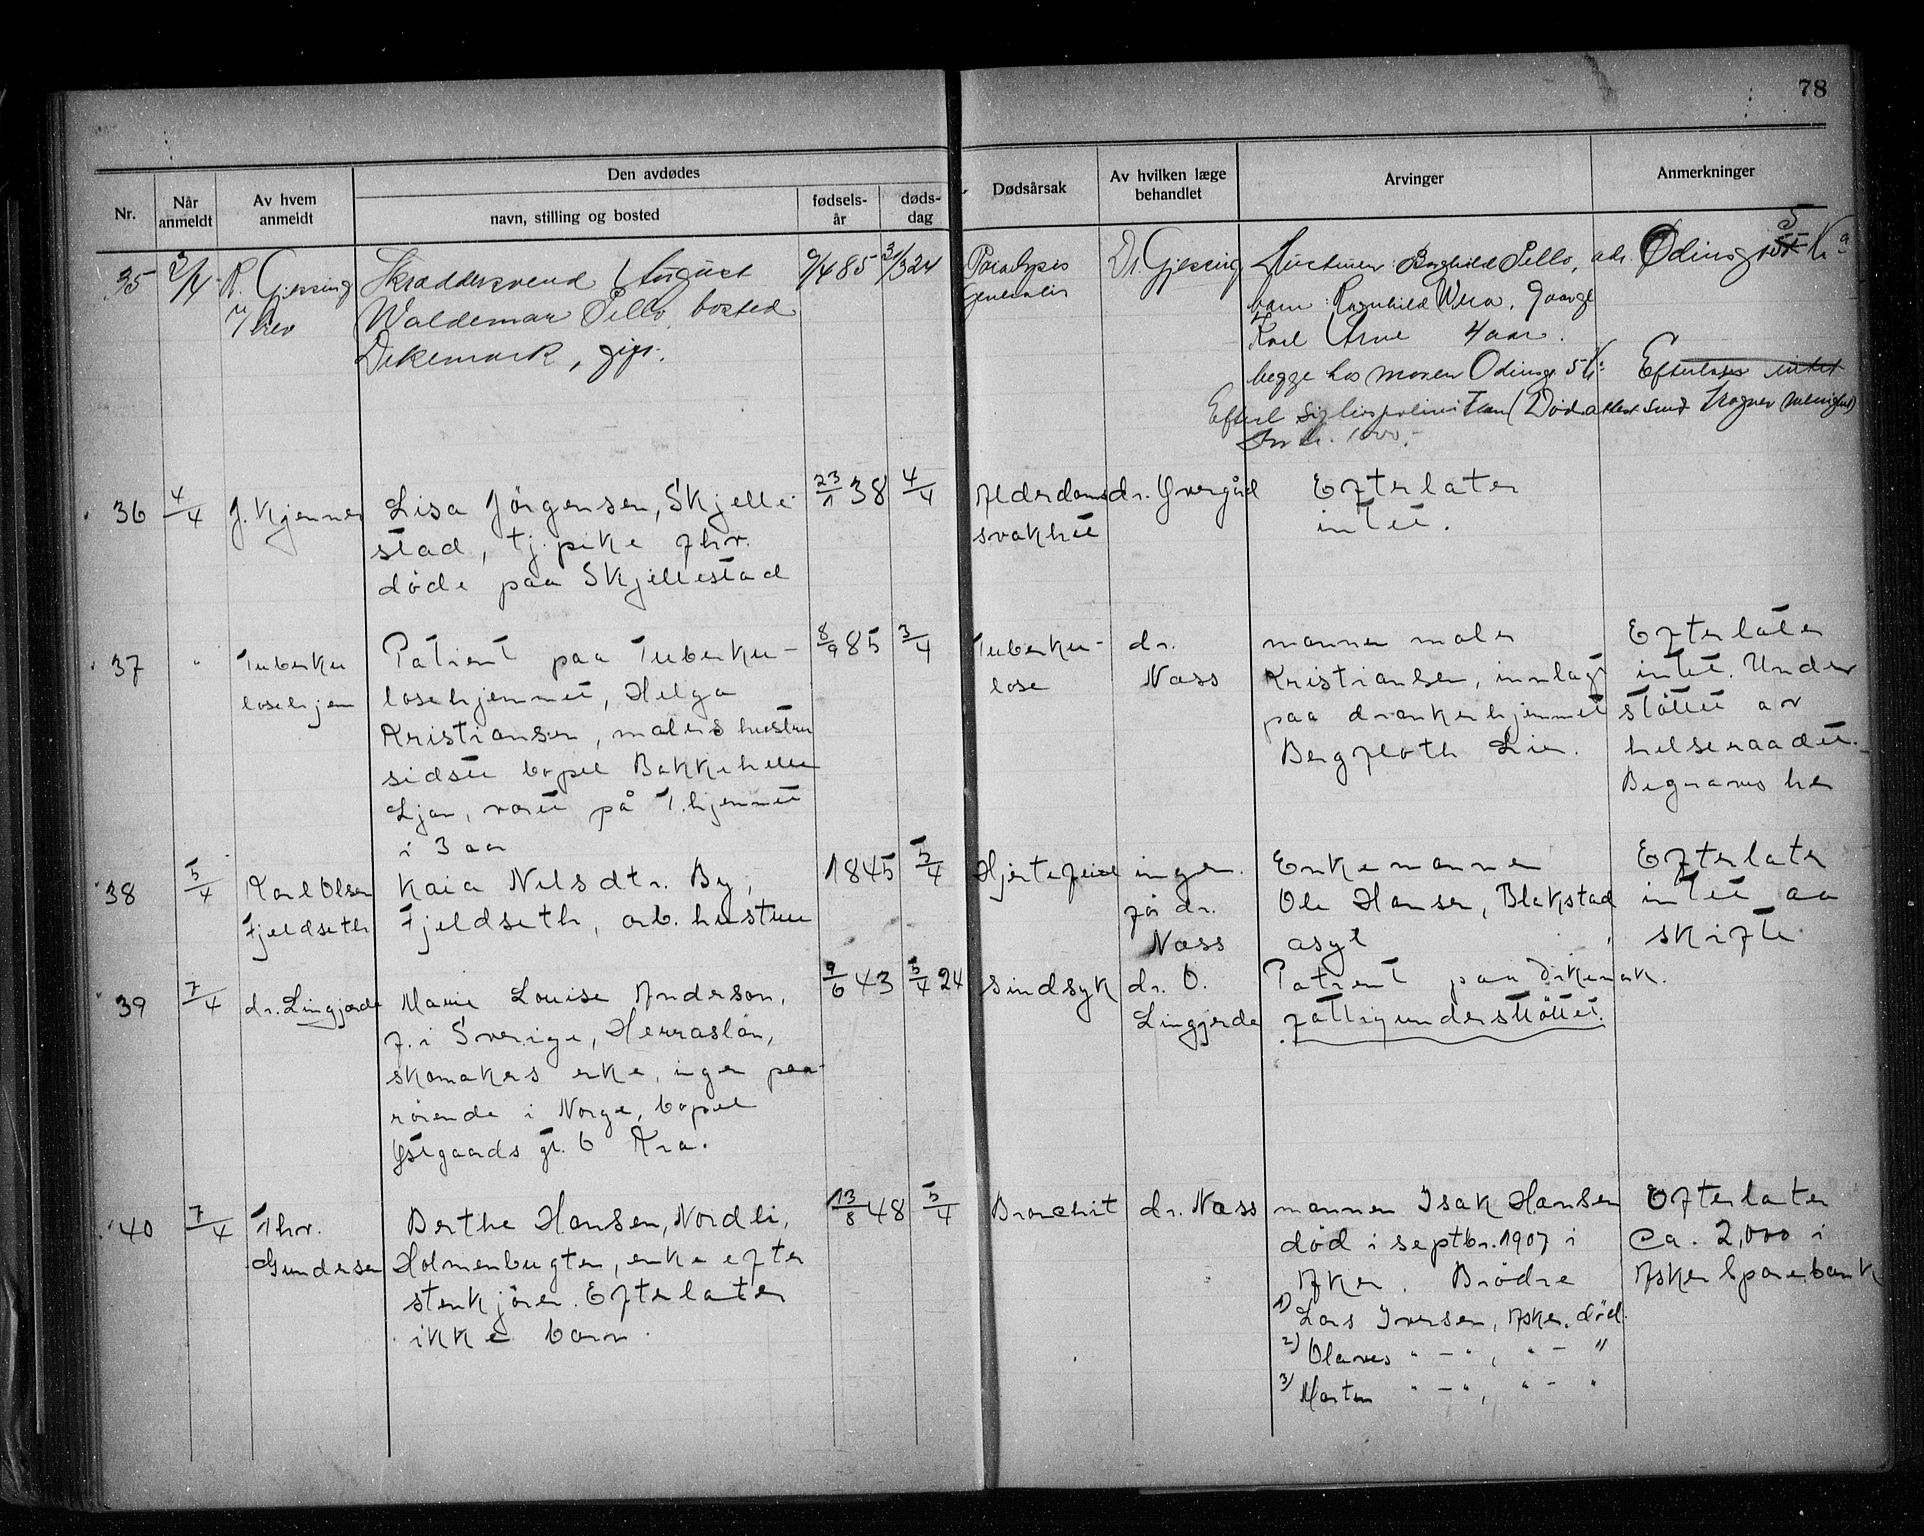 78
Nr.
Når anmeldt
Av hvem anmeldt
Den avdødes
navn, stilling og bosted
fødsels-år
døds-dag
Dødsårsak
Av hvilken læge behandlet
Arvinger
Anmerkninger
35
2/4
R. Gjessing
brev
Skræddersvend August
Waldemar Pello, bosted
Dikemark, gift.
9/4 85
31/3 24
Paralysis
Generalis
Dr. Gjessing
Hustruen Borghild Pello, adr. Odinsgt 5 Kr.a
barn: Ragnhild Wera, 9 aar
Karl Arne 4 aar.
begge hos moren Odinsgt 5 Kr.a
Efterlater intet
Efterl
(Dødsattest send Vogner menighet)
kr. 1000.-
36
4/4
J. Kjenner
Lisa Jörgensen, Skjelle-
stad, tj. pike fhv.
döde paa Skjellestad
23/1 38
4/4
Alderdoms
svakhet
dr. Övergård
Efterlater
intet.
37
"
Tuberku
losehjem
Patient paa Tuberku-
losehjemmet, Helga
Kristiansen, malers hustru
sidste bopel Bakkehellet
Ljan, varet på T.hjemmet
i 3 aar
8/9 85
3/4
Tuberku-
lose
dr.
Næss
mannen maler
Kristiansen, innlagt
paa drankerhjemmet
Bergfloth Lier.
Efterlater
intet. Under
stöttet av
helseraadet.-
Begraves her
38
5/4
Karl Olsen
Fjeldseth
Kaia Nilsdtr. By,
Fjeldseth, arb. hustru
1845
5/4
Hjertefeil
ingen.
för dr.
Næss
Enkemannen
Ole Hansen, Blakstad
asyl
Efterlater
intet aa
skifte.
39
7/4
dr. Lingjærde
Marie Louise Anderson,
f. i Sverige, Herraslån,
skomakers enke, ingen paa-
rörende i Norge, bopæl
Östgaards gt. 6 Kra.
9/6 43
5/4 24
Sindsyk
dr. O.
Lingjerde
Patient paa Dikemark.
fattigunderstöttet.
40
7/4
Thv.
Gundersen
Berthe Hansen, Nordli,
Holmenbugten, enke efter
stenkjörer. Efterlater
ikke barn.
13/8 48
5/4
Bronchit
dr. Næss
mannen Isak Hansen
död i septbr. 1907 i
Aker. Brödre
1) Lars Iversen, Asker. död.
2) Olaves " - ", " - "
3) Morten " - ", " - "
Efterlater
Ca. 2,000 i
Asker Sparebank